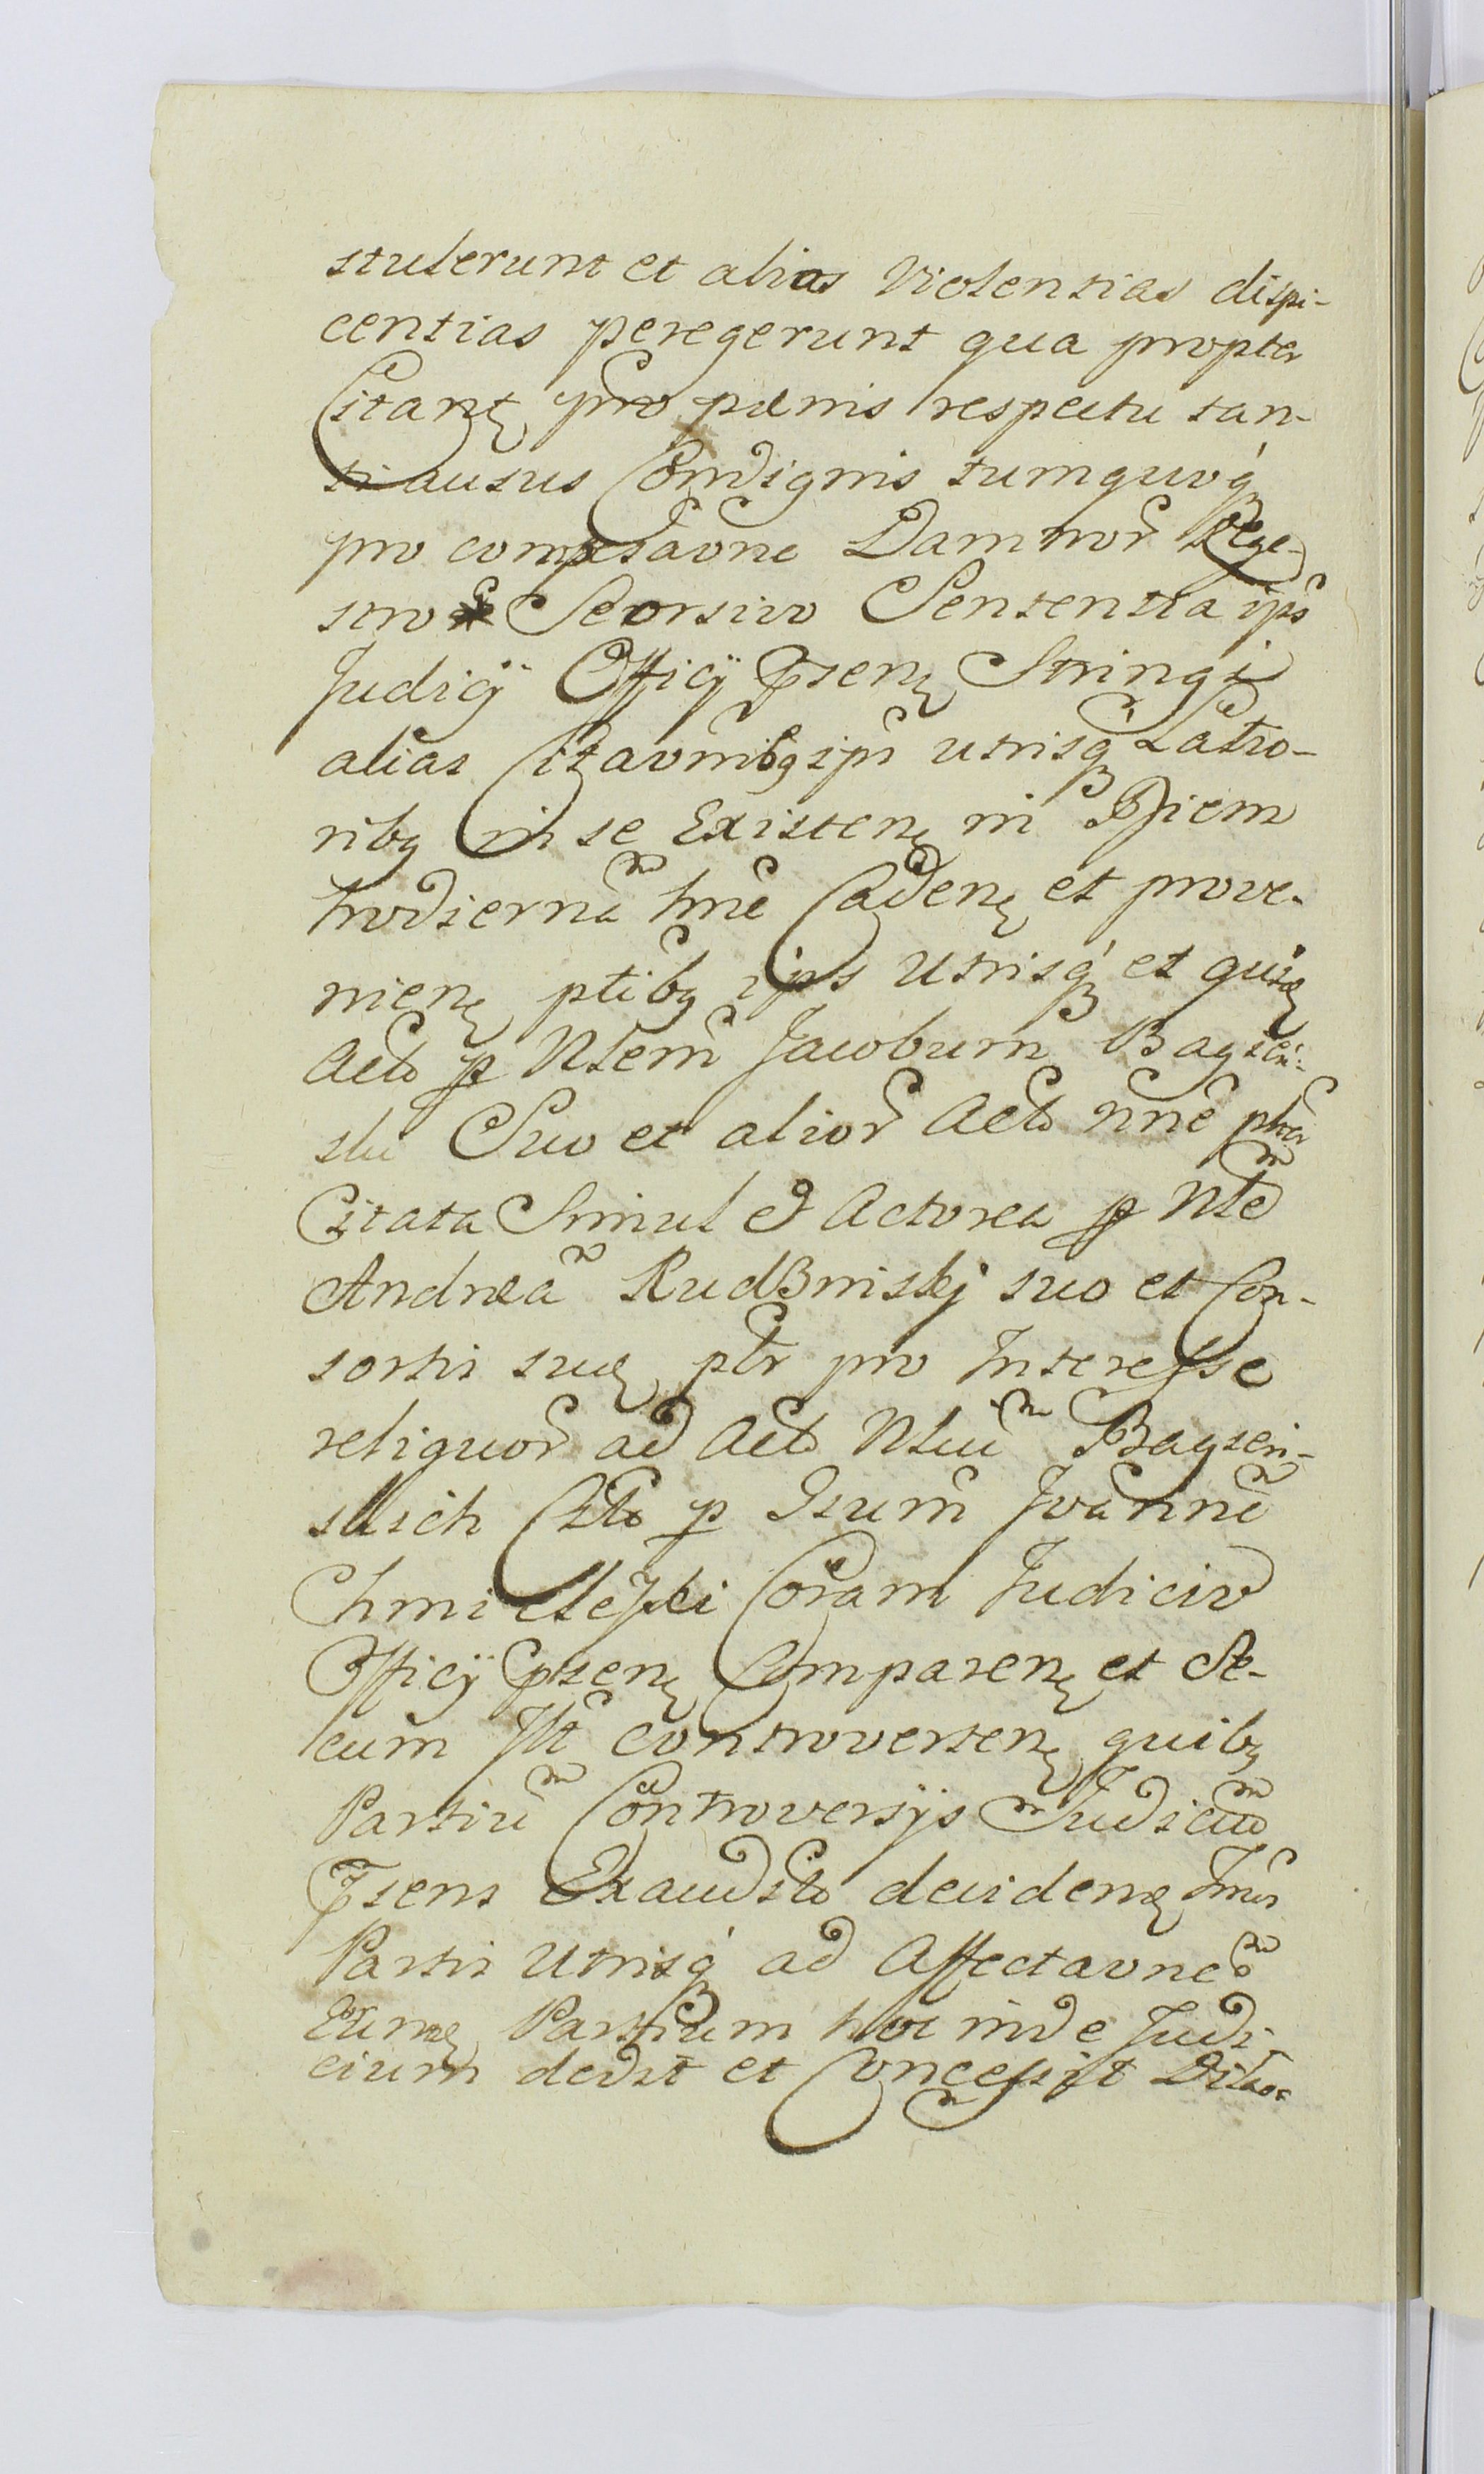 stulerunt et alias Violentias dispi-
centias peregerunt qua propter
Citanę pro pænis respectu tan-
ti ausus Condignis tumquoq́
pro compensãone Damnor̃ Rege-
stro Seorsivo Sententia ips̃
Judicÿ Officÿ Psenę Stringi
alias Citãonibq ipñ utrisq́ Latio-
nibq in se Existenę in Diem
hodiernã hñc Cadenę et prove-
nienę ptibq ips utrisq́ et quidę
Acto p Nlem̃ Jacobum Bagień-
ski Suo et alior̃ Acto nñe pter
Citata Simul et Actorea p Nlẽ
Andreã Rudzinskj suo et Con-
sortis suæ ptr pro Interesse
reliquor̃ ad Acto Nliũ Bagień-
skich Cito p Gsum̃ Joannẽ
Chmielewski Coram Judicio
Officÿ psenę Comparenę et Se-
cum Jłł controvertenę quibq
Partiũ Controversÿs Judiciũ
Psens Exaudito decidenę
Partis Utrisq́ ad Affectãonem
Eumę Partium hoc inde Judi
cium dedit et Concessit Dilaõe